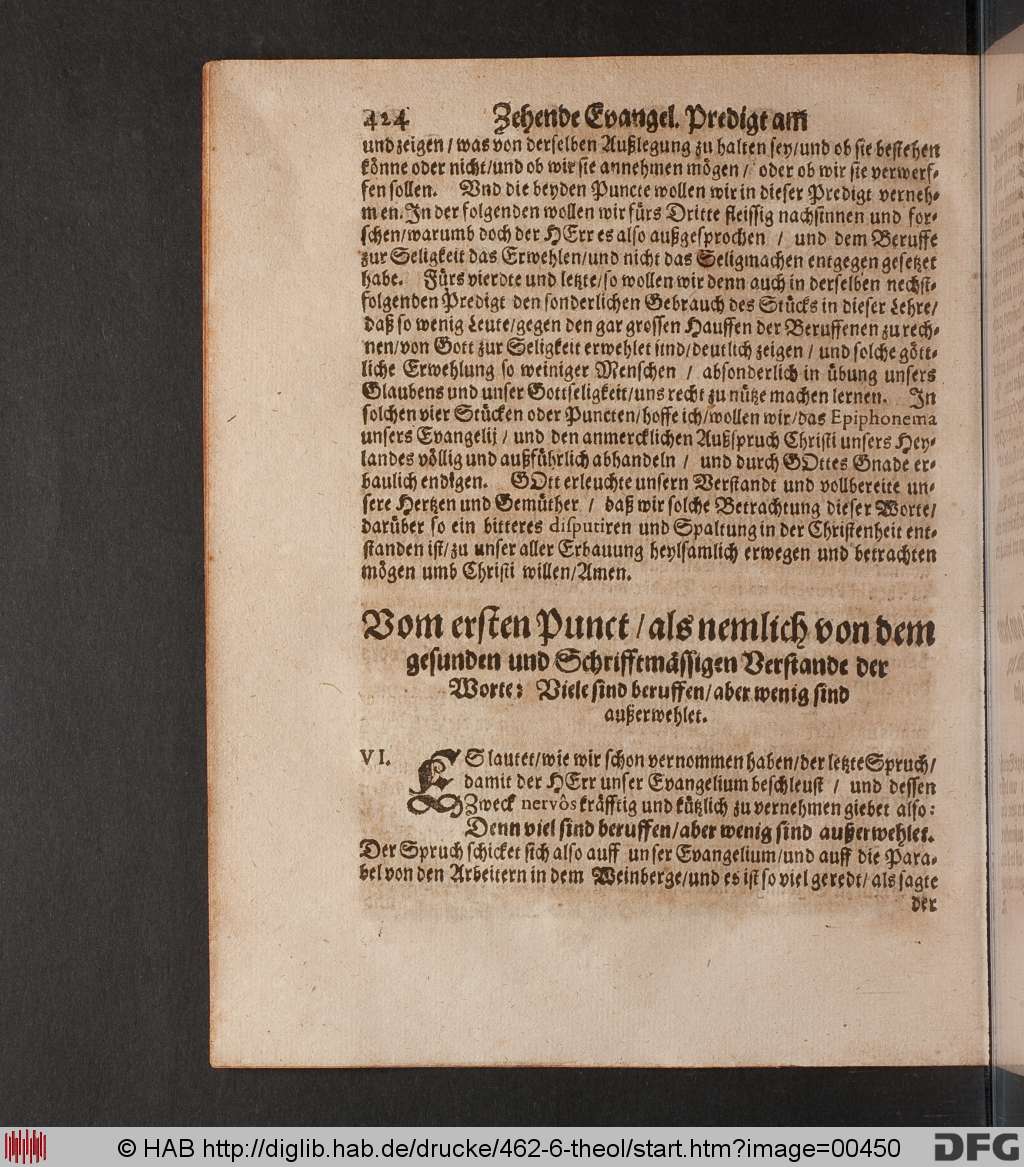 424 Zehende Evangel. Predigt am
und zeigen / was von derselben Außlegung zu halten sey/und ob sie bestehen
könne oder nicht/und ob wir sie annehmen mögen / oder ob wir sie verwerf-
fen sollen. Vnd die beyden Puncte wollen wir in dieser Predigt verneh-
men. In der folgenden wollen wir fürs Dritte fleissig nachsinnen und for-
schen/warumb doch der HErr es also außgesprochen / und dem Beruffe
zur Seligkeit das Erwehlen/und nicht das Seligmachen entgegen gesetzet
habe. Fürs vierdte und letzte/so wollen wir denn auch in derselben nechst-
folgenden Predigt den sonderlichen Gebrauch des Stücks in dieser Lehre/
daß so wenig Leute/gegen den gar grossen Hauffen der Beruffenen zu rech-
nen/von Gott zur Seligkeit erwehlet sind/deutlich zeigen / und solche gött-
liche Erwehlung so weiniger Menschen / absonderlich in übung unsers
Glaubens und unser Gottseligkeit/uns recht zu nütze machen lernen. In
solchen vier Stücken oder Puncten/hoffe ich/wollen wir/das Epiphonema
unsers Evangelij / und den anmercklichen Außspruch Christi unsers Hey-
landes völlig und außführlich abhandeln / und durch GOttes Gnade er-
baulich endigen. GOtt erleuchte unsern Verstandt und vollbereite un-
sere Hertzen und Gemüther / daß wir solche Betrachtung dieser Worte/
darüber so ein bitteres disputiren und Spaltung in der Christenheit ent-
standen ist/zu unser aller Erbauung heylsamlich erwegen und betrachten
mögen umb Christi willen/Amen.
Vom ersten Punct / als nemlich von dem
gesunden und Schrifftmässigen Verstande der
Worte: Viele sind beruffen/aber wenig sind
außerwehlet.
VI. ES lautet/wie wir schon vernommen haben/der letzte Spruch/
damit der HErr unser Evangelium beschleust / und dessen
Zweck nervôs kräfftig und kützlich zu vernehmen giebet also:
Denn viel sind beruffen/aber wenig sind außerwehlet.
Der Spruch schicket sich also auff unser Evangelium/und auff die Para-
bel von den Arbeitern in dem Weinberge/und es ist so viel geredt/als sagte
der
© HAB http://diglib.hab.de/drucke/462-6-theol/start.htm?image=00450
DFG